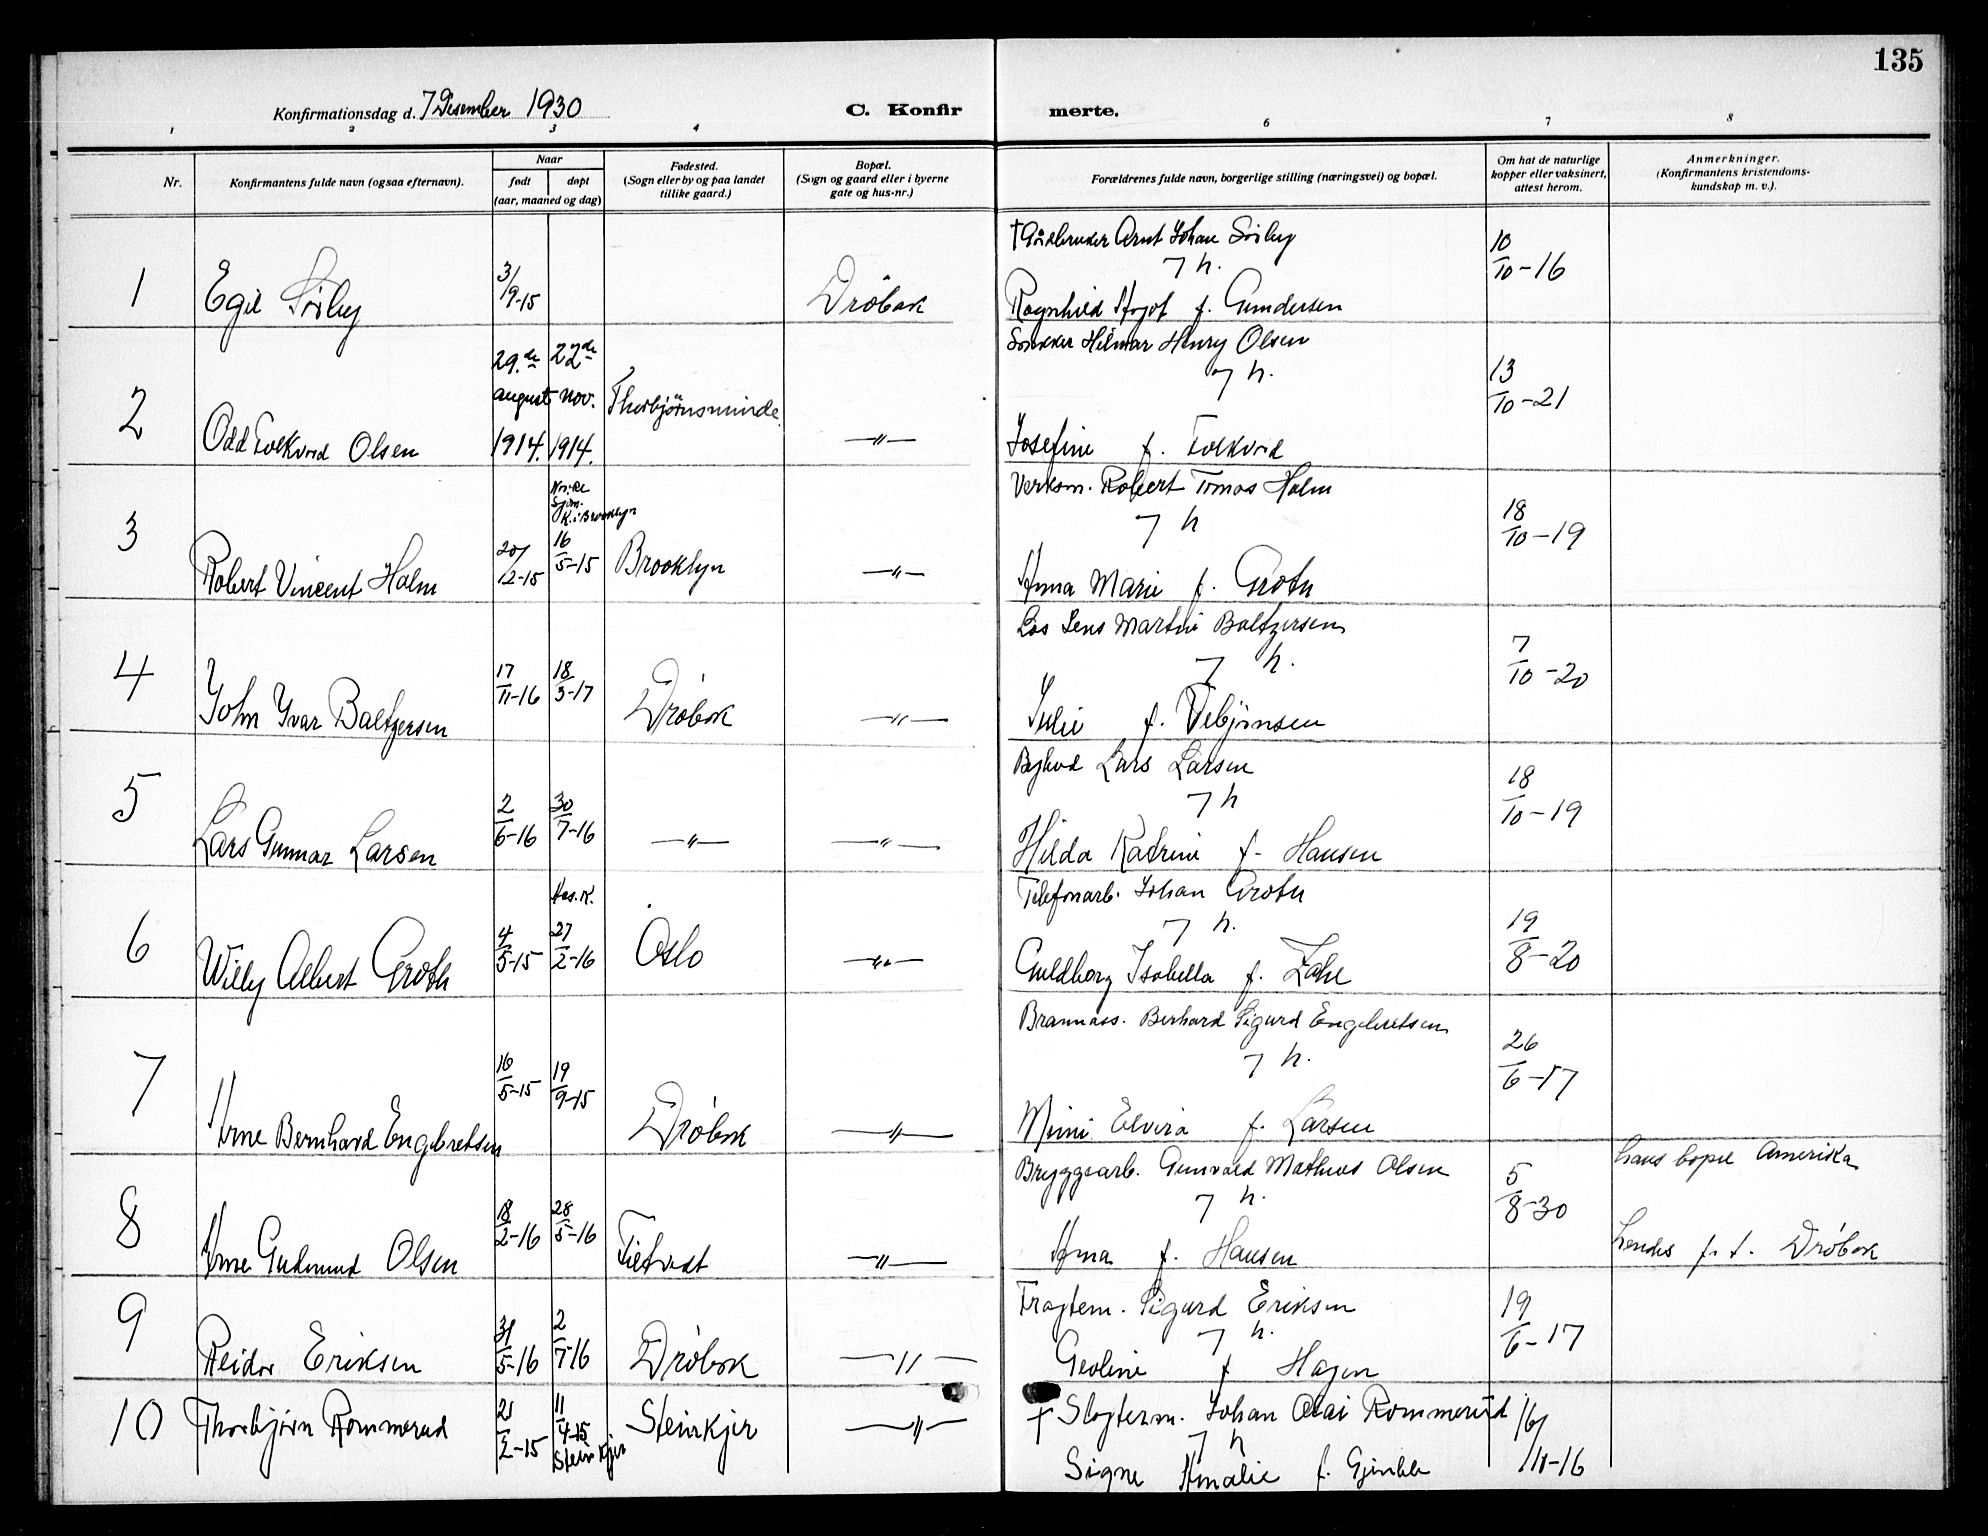 135
Konfirmationsdag d. 7 Desember 1930
C. Konfirmerte.
1 2 3 4 6 7 8
Nr.
Konfirmantens fulde navn (ogsaa efternavn).
Naar
født døpt
(aar, maaned og dag)
Fødested.
(Sogn eller by og paa landet
tillike gaard.)
Bopæl.
(Sogn og gaard eller i byerne
gate og hus-nr.)
Forældrenes fulde navn, borgerlige stilling (næringsvei) og bopæl.
Om hat de naturlige
kopper eller vaksinert,
attest herom.
Anmerkninger.
(Konfirmantens kristendoms-
kundskap m. v.).
† Gårdbruker Arnt Johan Sørby
7 h.
1 Egil Sørby 3/9-15 Drøbak 10/10-16
Ragnhild f. Gundersen
Hilmar Henry Olsen
7 h.
2 Odd Folkvord Olsen 29.de august 1914. 22de nov. 1914. Thorbjørnsminde —"— 13/10-21
Josefine f. Folkvord
Verksm. Robert Tomas Holm
7 h
3 Robert Vincent Holm 20/12-15 Norske Sjøm. K. i Brooklyn 16/5-15 Brooklyn —"— 18/10-19
Anna Marie f. Groth
Los Jens Martin Baltzersen
7 h.
4 John Yvar Baltzersen 17/11-16 18/3-17 Drøbak —"— 7/10-20
Julie f. Vebjørnsen
Bybud Lars Larsen
7 h
5 Lars Gunnar Larsen 2/6-16 30/7-16 —"— —"— 18/10-19
Hilda Katrine f. Hansen
Telefonarb. Johan Groth
7 h.
6 Willy Albert Groth 4/5-15 Has. K. 27/2-16 Oslo —"— 19/8-20
Guldborg Isabella f. Zahl
Brannass. Bernhard Sigurd Engebretsen
7 h.
7 Arne Bernhard Engebretsen 16/5-15 19/9-15 Drøbak —"— 26/6-17
Mimi Elvira f. Larsen
Bryggearb. Gunvald Mathias Olsen hans bopel Amerika
7 h.
8 Arne Gudmund Olsen 18/2-16 28/5-16 Filtvedt —"— 5/8-30
Anna f. Hansen hendes f. t. Drøbak
Fragtem. Sigurd Eriksen
7 h.
9 Reidar Eriksen 31/5-16 2/7-16 Drøbak —"— 19/6-17
Geoline f Hagen
† Slagterm. Johan Olai Rommerud
7 h
10 Thorbjørn Rommerud 21/2-15 11/4-15 Steinkjer Steinkjer —"— 16/11-16
Signe Amalie f.